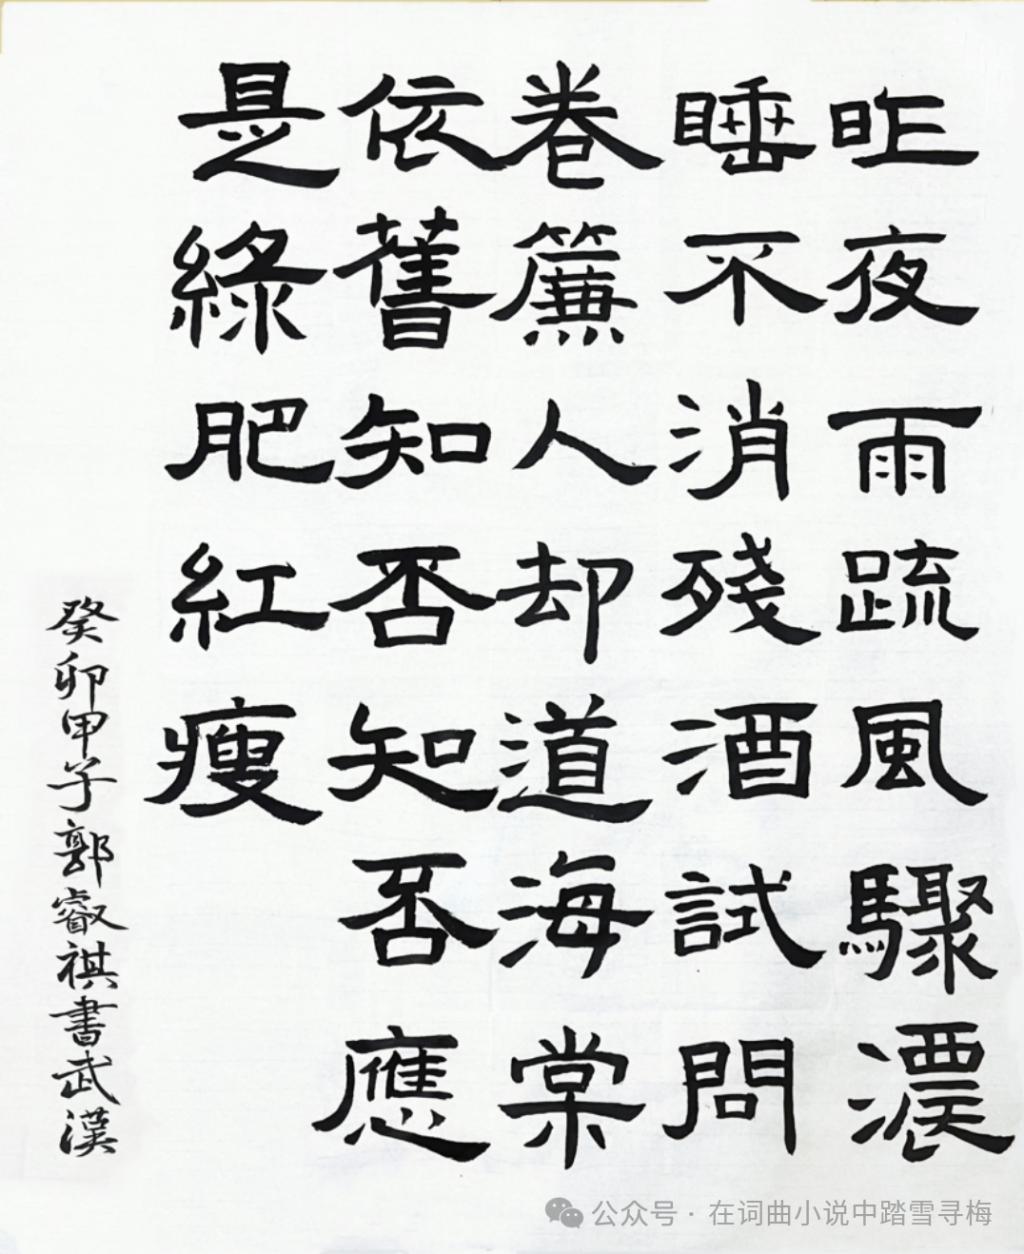 昨夜雨疏風驟濃
睡不消殘酒試問
卷簾人却道海棠
依舊知否知否應
是綠肥紅瘦
癸卯甲子郭叡祺書武漢
公众号 · 在词曲小说中踏雪寻梅